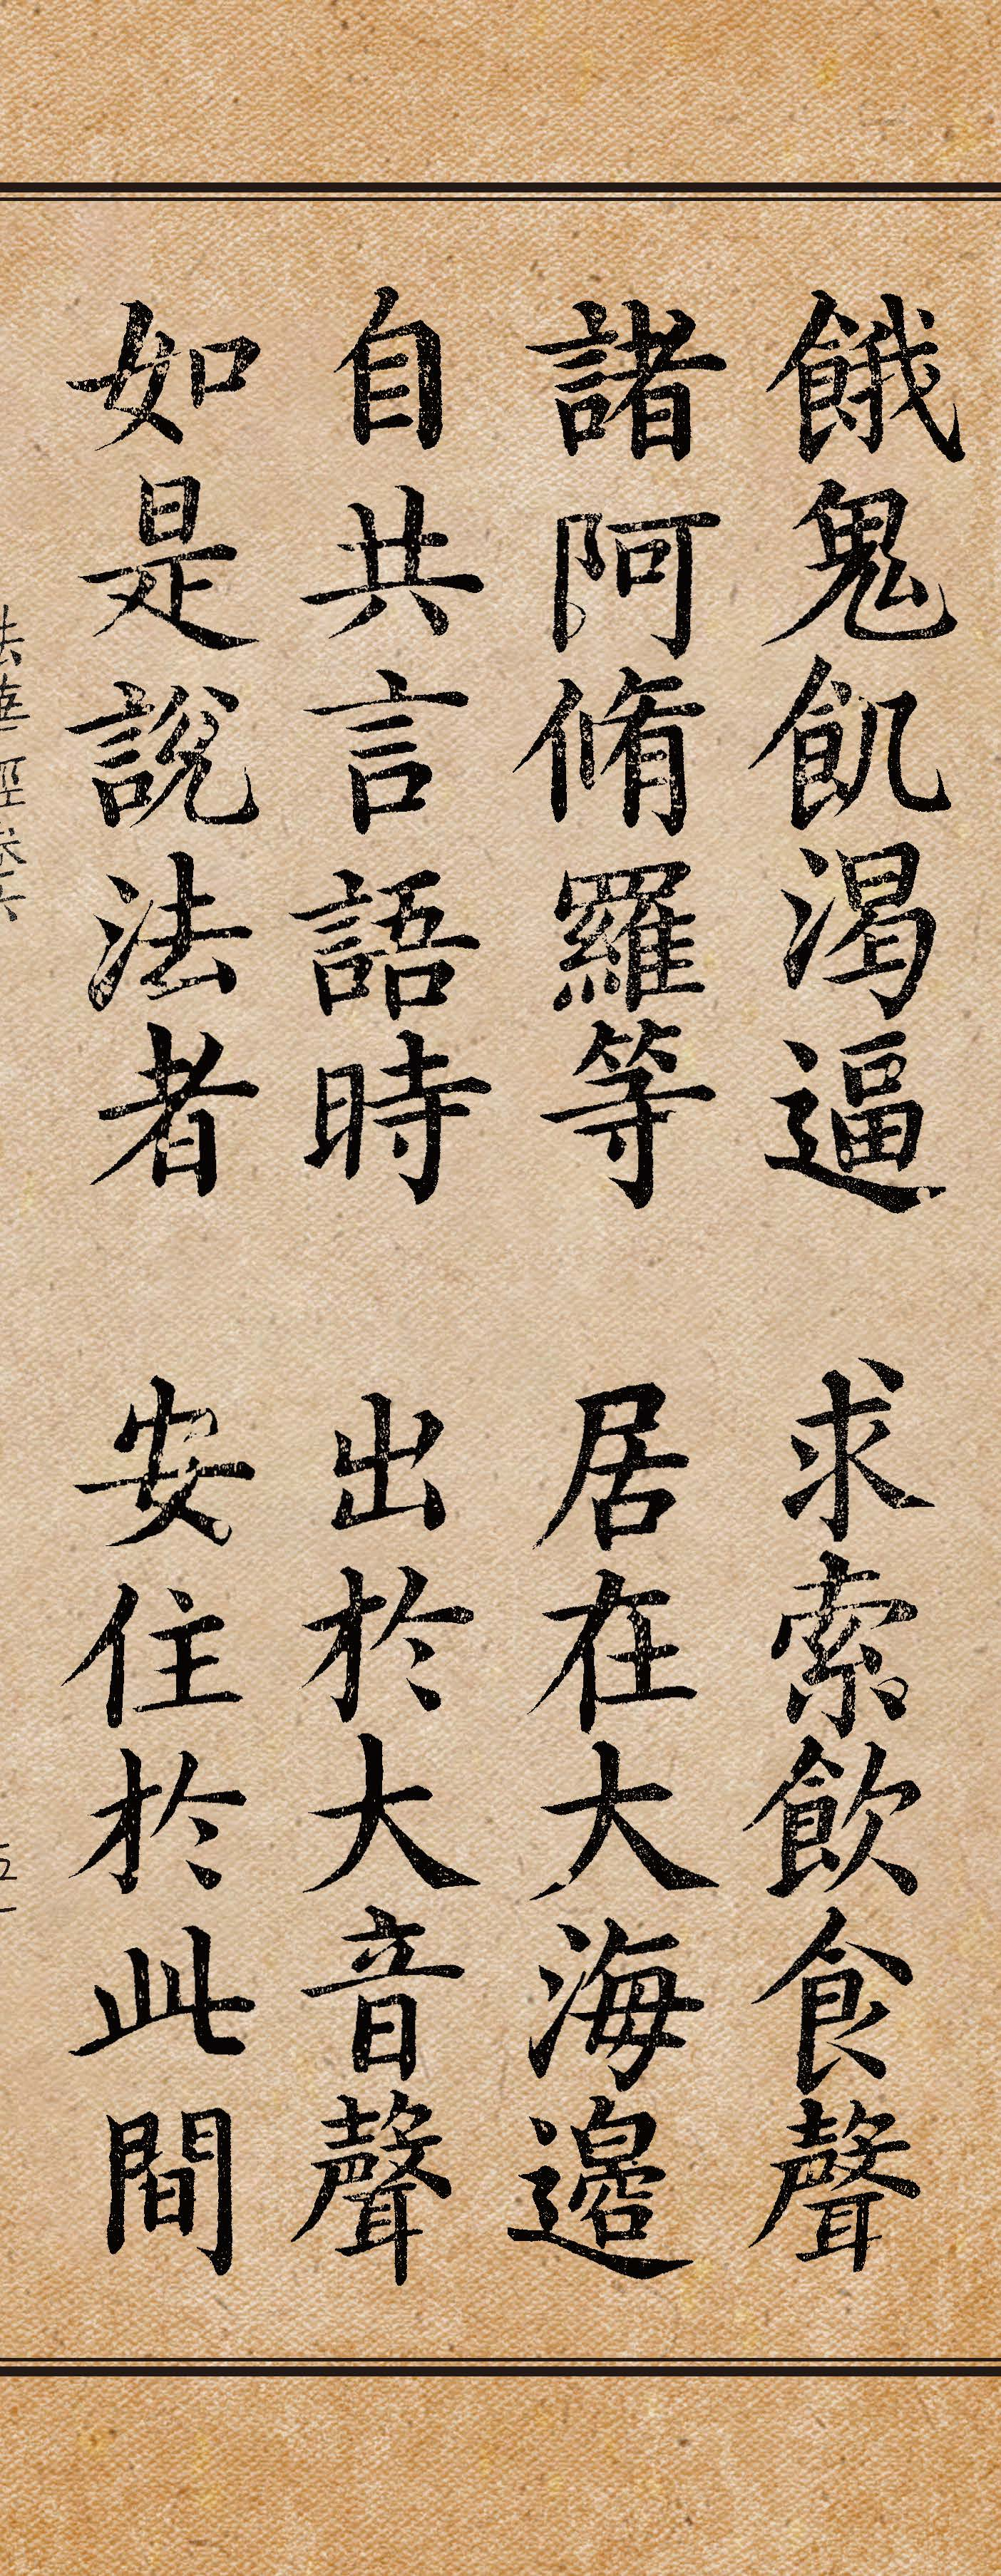 餓鬼飢渴逼　求索飲食聲
諸阿脩羅等　居在大海邊
自共言語時　出於大音聲
如是說法者　安住於此間
法華經卷六